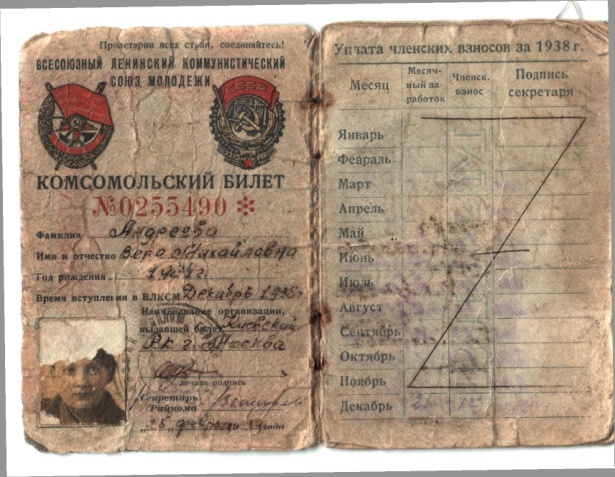 Пролетарии всех стран, соединяйтесь!
ВСЕСОЮЗНЫЙ ЛЕНИНСКИЙ КОММУНИСТИЧЕСКИЙ
СОЮЗ МОЛОДЕЖИ
КОМСОМОЛЬСКИЙ БИЛЕТ
№0255490 *
Фамилия Андреева
Имя и отчество Вера Михайловна
Год рождения
Время вступления в ВЛКСМ Декабрь
Наименование организации,
выдавшей билет
РК г. Москва
личная подпись
Секретарь
Райкома
февраля года
Уплата членских взносов за 1938 г.
Месяц
Месяч-
ный за-
работок
Членск.
взнос
Подпись
секретаря
Январь
Февраль
Март
Апрель
Май
Июнь
Июль
Август
Сентябрь
Октябрь
Ноябрь
Декабрь
СССР